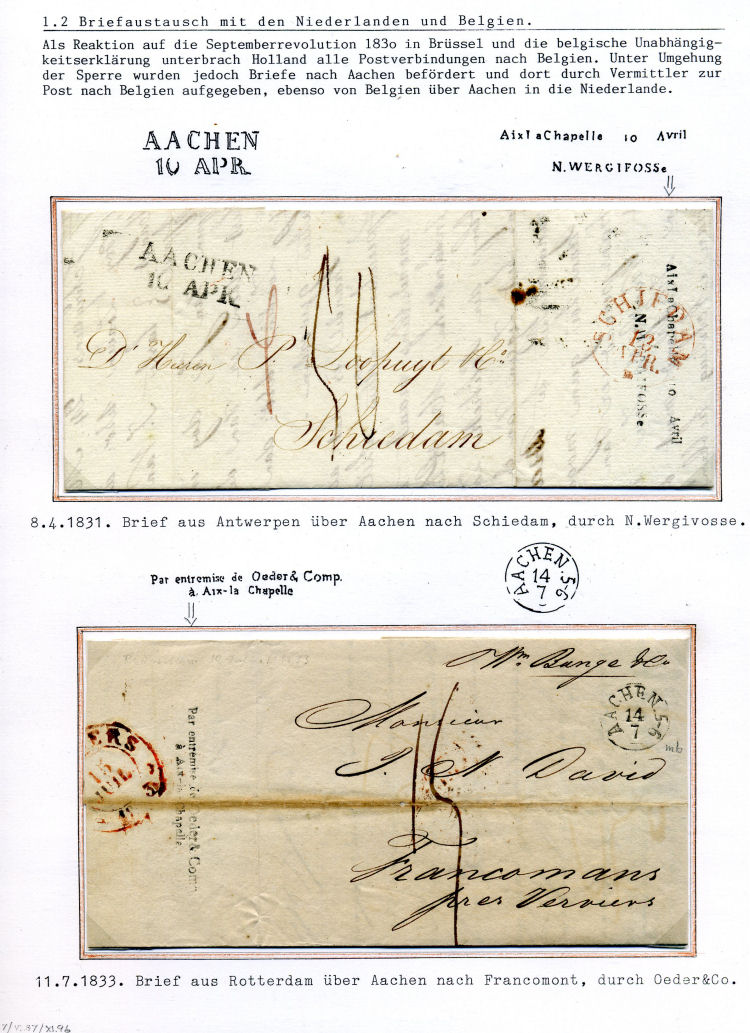 1.2 Briefaustausch mit den Niederlanden und Belgien.
Als Reaktion auf die Septemberrevolution 183o in Brüssel und die belgische Unabhängig-
keitserklärung unterbrach Holland alle Postverbindungen nach Belgien. Unter Umgehung
der Sperre wurden jedoch Briefe nach Aachen befördert und dort durch Vermittler zur
Post nach Belgien aufgegeben, ebenso von Belgien über Aachen in die Niederlande.
AACHEN
10 APR.
AixlaChapelle 10 Avril
N.WERGIFOSSe
AACHEN
10 APR.
SCHIEDAM
13
APR.
AixlaChapelle 10 Avril
N.WERGIFOSSe
P. Loopuyt
Schiedam
8.4.1831. Brief aus Antwerpen über Aachen nach Schiedam, durch N.Wergivosse.
Par entremise de Oeder & Comp.
à Aix-la Chapelle
AACHEN 5-6
14
7
Wm. Bunge & Co
AACHEN 5-6
14
7
mb
Monsieur
J. N. David
Francomans
pres Verviers
Par entremise de Oeder & Comp.
à Aix-la Chapelle
ERS
15
JUIL
11.7.1833. Brief aus Rotterdam über Aachen nach Francomont, durch Oeder&Co.